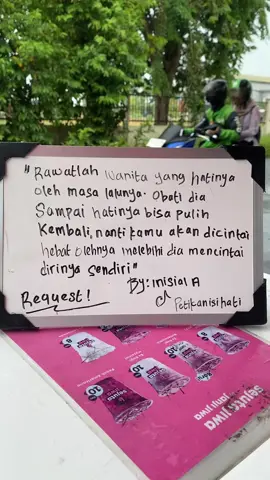 "Rawatlah wanita yang hatinya
oleh masa lalunya. Obati dia
Sampai hatinya bisa pulih
Kembali, nanti kamu akan dicintai
hebat olehnya melebihi dia mencintai
dirinya sendiri"
By: inisial A
Request!
Petikanisihati
selutujiwa